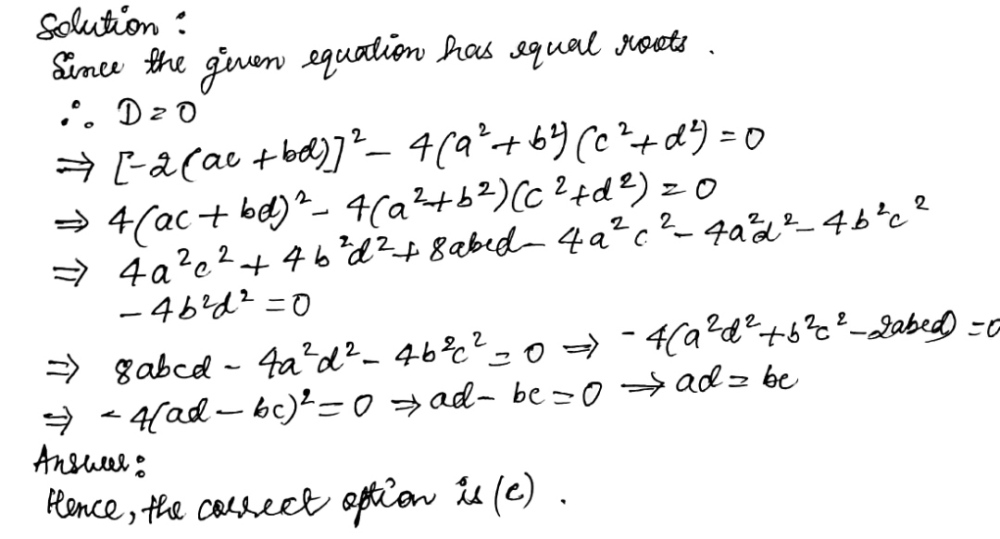 Solution :
Since the given equation has equal roots .
∴ D = 0
⇒ [-2(ac + bd)]² - 4(a² + b²)(c² + d²) = 0
⇒ 4(ac + bd)² - 4(a² + b²)(c² + d²) = 0
⇒ 4a²c² + 4b²d² + 8abcd - 4a²c² - 4a²d² - 4b²c²
- 4b²d² = 0
⇒ 8abcd - 4a²d² - 4b²c² = 0 ⇒ - 4(a²d² + b²c² - 2abcd) = 0
⇒ - 4(ad - bc)² = 0 ⇒ ad - bc = 0 ⇒ ad = bc
Answer :
Hence, the correct option is (c) .